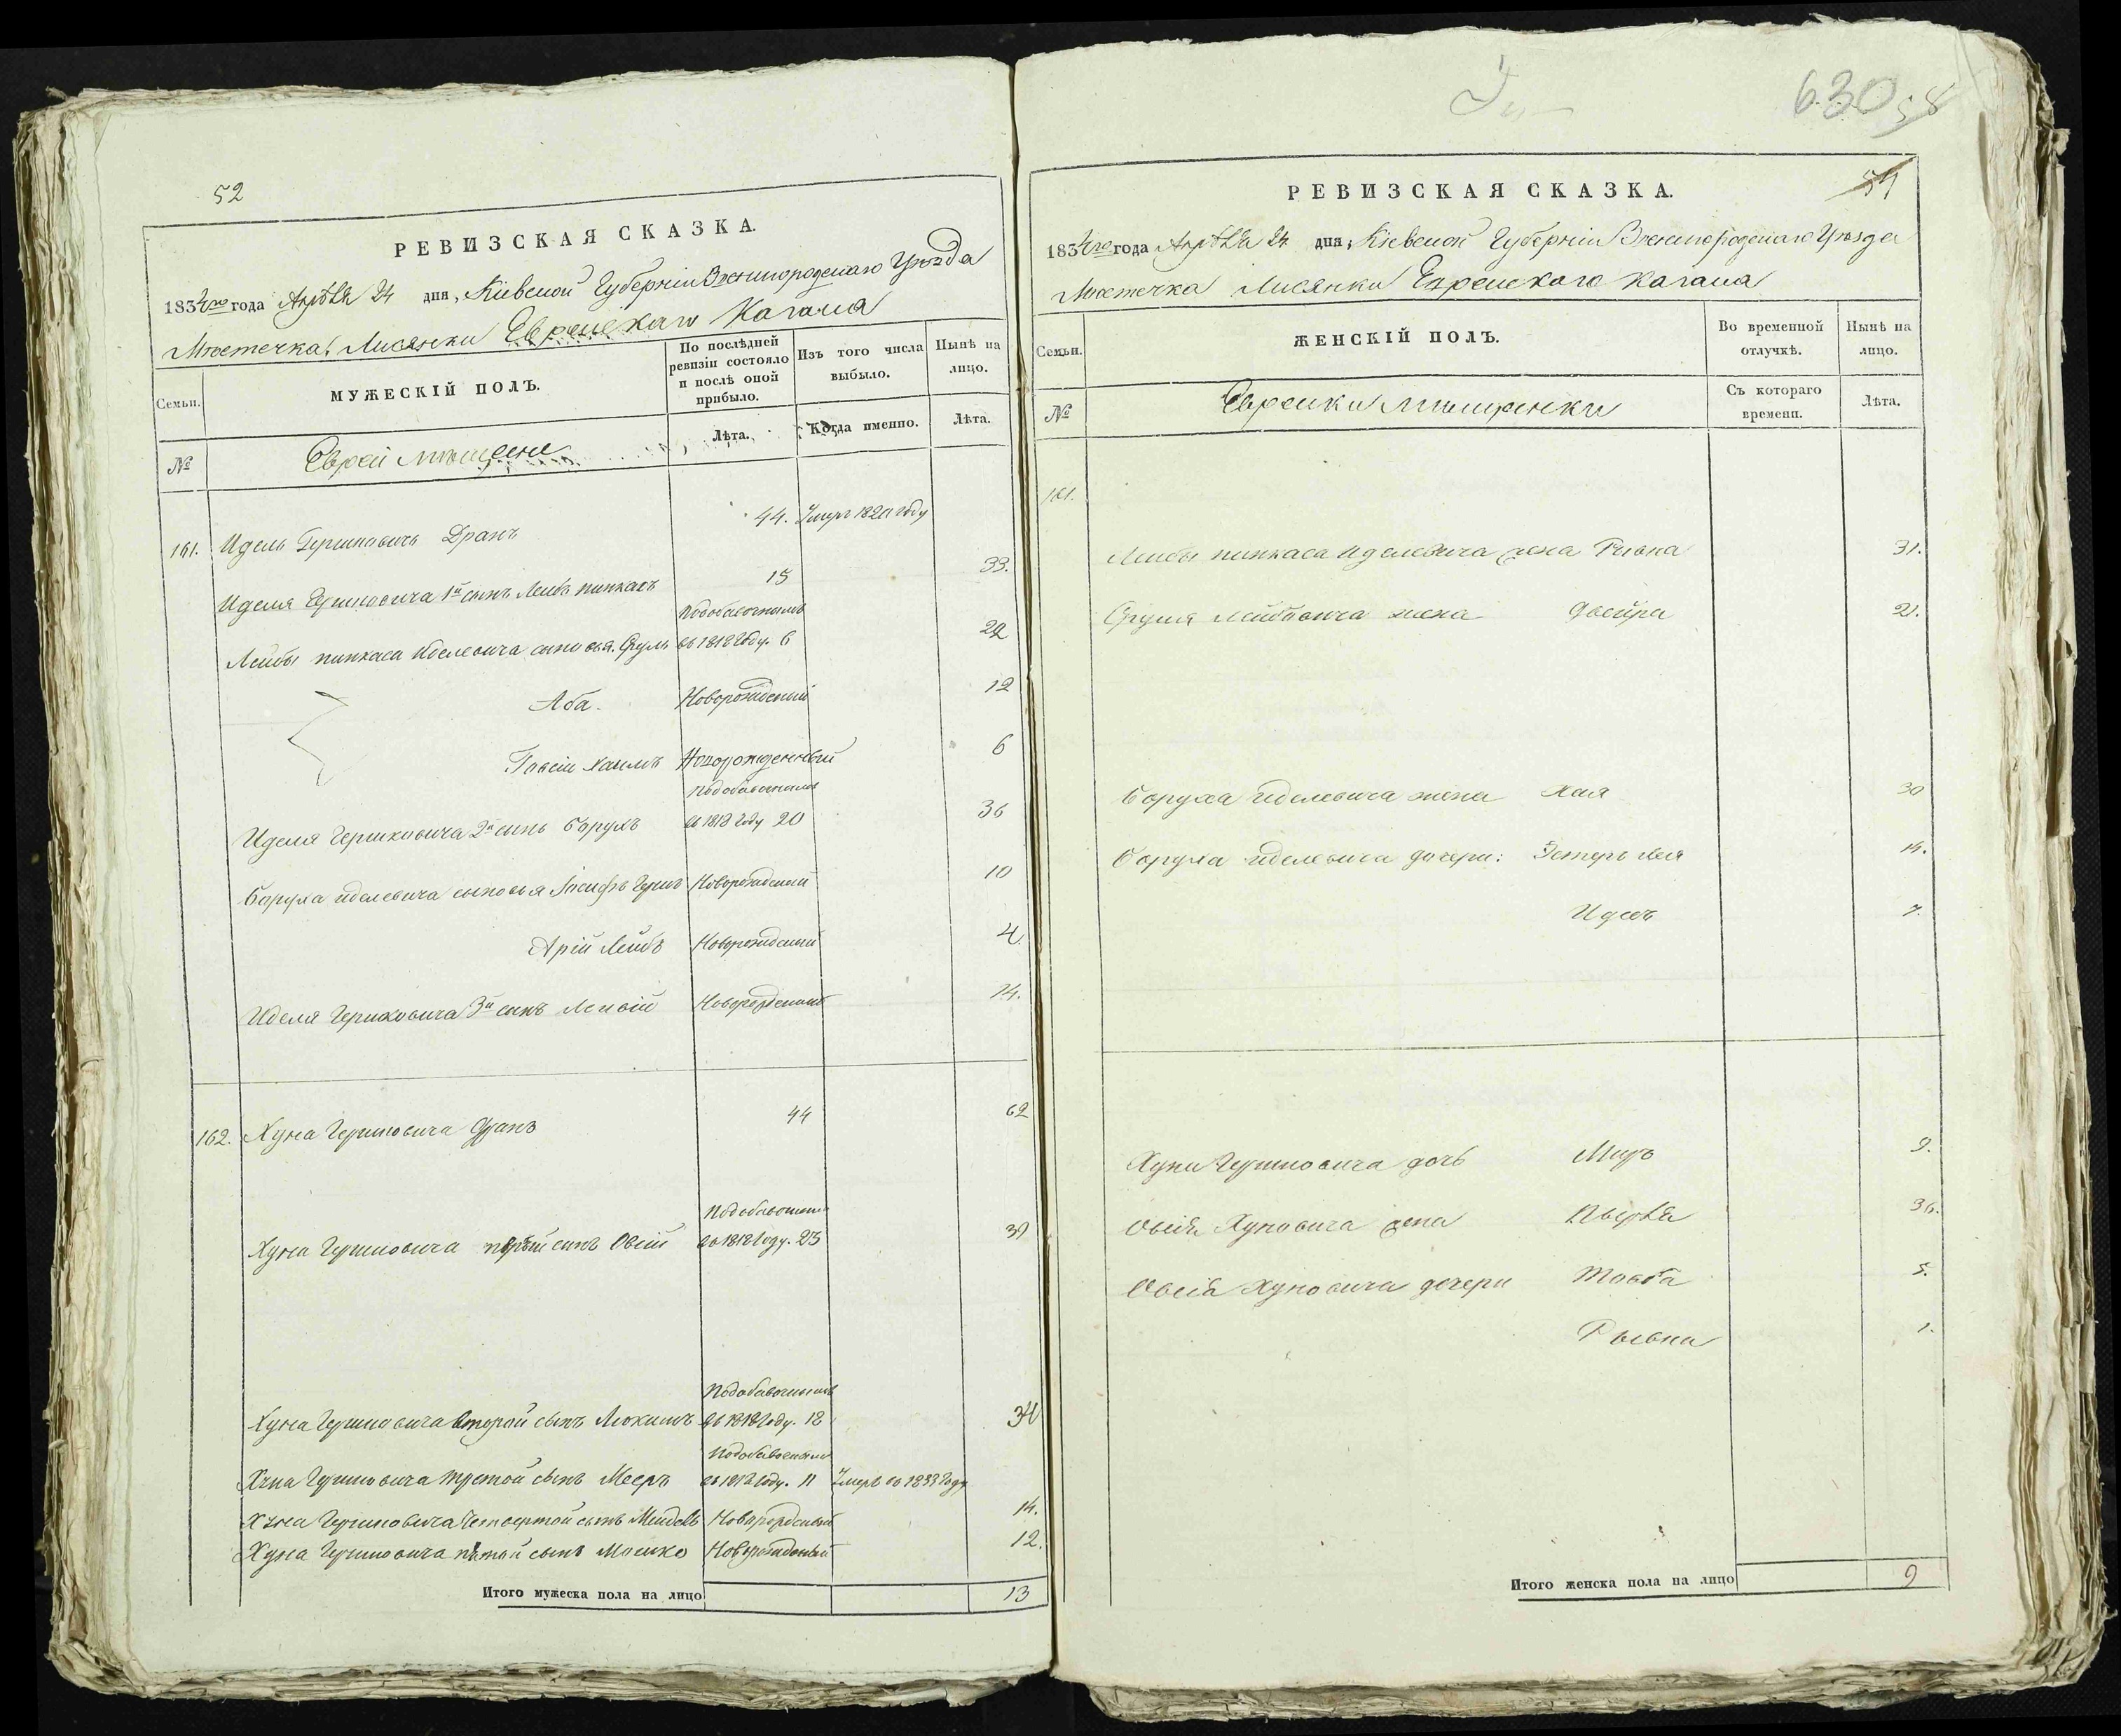 52
РЕВИЗСКАЯ СКАЗКА.
1834го года Апрѣля 24 дня, Кіевской Губерніи Звенигородскаго Уѣзда
Мѣстечка Лисянки Еврейскаго Кагала
Семьи.
МУЖЕСКІЙ ПОЛЪ.
По послѣдней ревизіи состояло и послѣ оной прибыло.
Изъ того числа выбыло.
Нынѣ на лицо.
№
Евреи мѣщане
Лѣта.
Когда именно.
Лѣта.
161. Идель Гершковичъ Дранъ 44. Умеръ 1820 году
Иделя Гершковича 1й сынъ Лейба пинкасъ 15 33.
Подобавочнымъ
Лейбы пинкаса Иделевича сыновья. Сруль въ 1818 году. 6 22
Аба. Новорожденный 12
Говсій хаимъ Новорожденный 6
Подобавочнымъ
Иделя Гершковича 2й сынъ Борухъ въ 1818 году 20 36
Боруха иделевича сыновья Іосифъ Гершъ Новорожденный 10
Арій Лейбъ Новорожденный 4.
Иделя Гершковича 3й сынъ Новорожденный 14.
162. Хуна Гершковича Дранъ 44 62
Подобавочнымъ
Хуна Гершковича первый сынъ Овсій въ 1818 году. 23 39
Подобавочнымъ
Хуна Гершковича второй сынъ въ 1818 году. 18 34
Подобавочнымъ
Хуна Гершковича третой сынъ Мееръ въ 1818 году. 11 Умеръ въ 1833 году
Хуна Гершковича Четвертой сынъ Мендель Новорожденный 14.
Хуна Гершковича пятой сынъ Мошко Новорожденный 12.
Итого мужеска пола на лицо 13
630
58
54
РЕВИЗСКАЯ СКАЗКА.
1834го года Апрѣля 24 дня, Кіевской Губерніи Звенигородскаго Уѣзда
Мѣстечка Лисянки Еврейскаго Кагала
Семьи.
ЖЕНСКІЙ ПОЛЪ.
Во временной отлучкѣ.
Нынѣ на лицо.
№
Еврейки мѣщанки
Съ котораго времени.
Лѣта.
161.
Лейбы пинкаса Иделевича жена Ривка 31.
Сруля Лейбовича жена Двейра 21.
Боруха иделевича жена Хая 30
Боруха иделевича дочери: Эстеръ Лея 14.
7.
Хуни Гершковича дочь 9.
Овсія Хуновича жена 36.
Овсія Хуновича дочери Товба 5.
1.
Итого женска пола на лицо 9